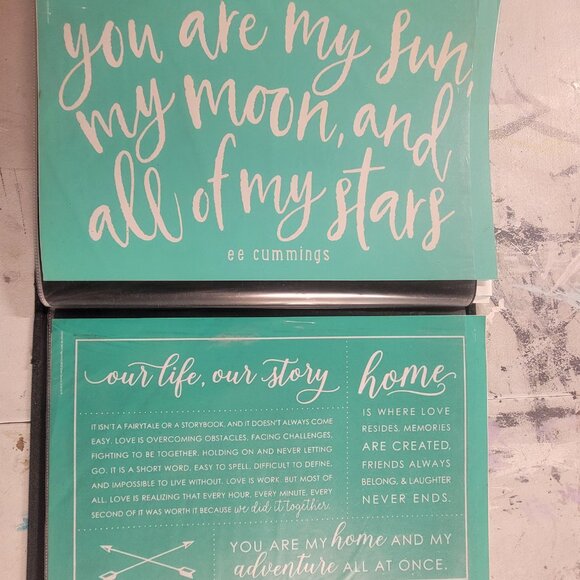 you are my sun,
my moon, and
all of my stars
ee cummings
our life, our story
IT ISN'T A FAIRYTALE OR A STORYBOOK, AND IT DOESN'T ALWAYS COME
EASY. LOVE IS OVERCOMING OBSTACLES, FACING CHALLENGES,
FIGHTING TO BE TOGETHER, HOLDING ON AND NEVER LETTING
GO. IT IS A SHORT WORD, EASY TO SPELL, DIFFICULT TO DEFINE,
AND IMPOSSIBLE TO LIVE WITHOUT. LOVE IS WORK, BUT MOST OF
ALL, LOVE IS REALIZING THAT EVERY HOUR, EVERY MINUTE, EVERY
SECOND OF IT WAS WORTH IT BECAUSE we did it together.
home
IS WHERE LOVE
RESIDES, MEMORIES
ARE CREATED,
FRIENDS ALWAYS
BELONG, & LAUGHTER
NEVER ENDS.
YOU ARE MY home AND MY
adventure ALL AT ONCE.